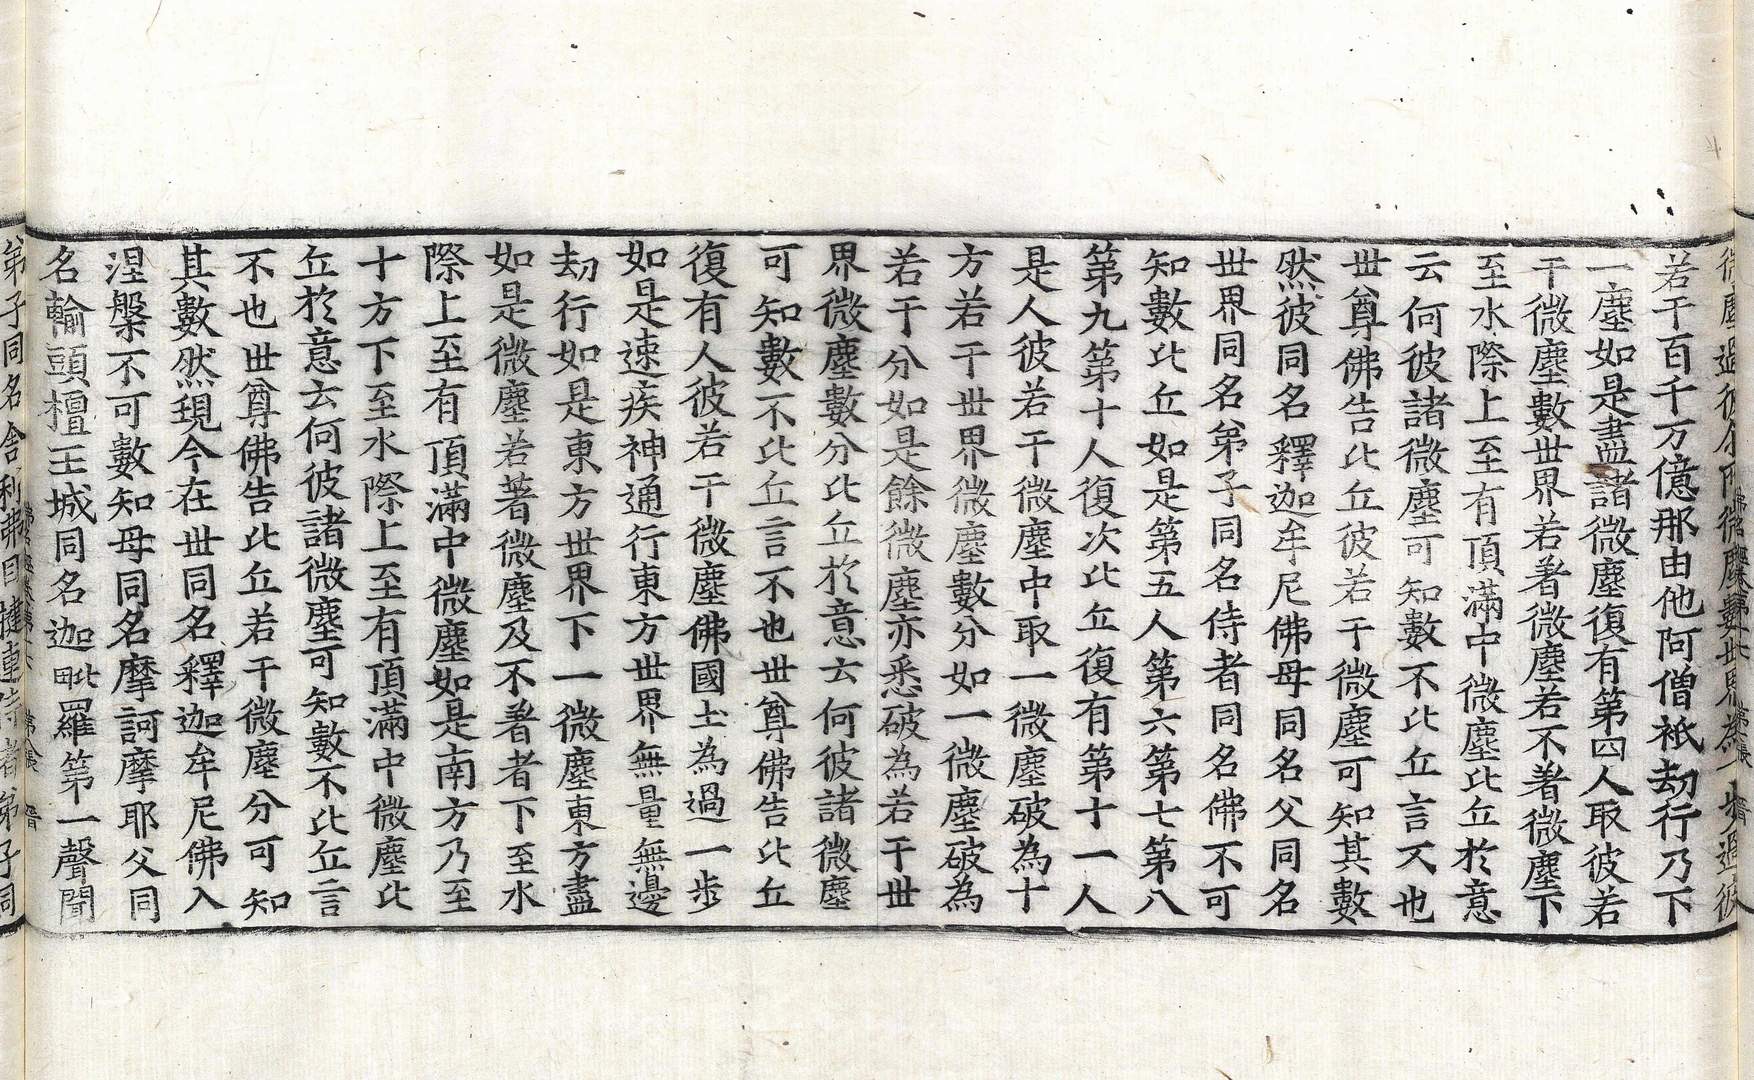 若干百千万億那由他阿僧祇劫行乃下
一塵如是盡諸微塵復有第四人取彼若
干微塵數世界若著微塵若不著微塵下
至水際上至有頂滿中微塵比丘於意
云何彼諸微塵可知數不比丘言不也
世尊佛告比丘彼若干微塵可知其數
然彼同名釋迦牟尼佛母同名父同名
世界同名弟子同名侍者同名佛不可
知數比丘如是第五人第六第七第八
第九第十人復次比丘復有第十一人
是人彼若干微塵中取一微塵破為十
方若干世界微塵數分如一微塵破為
若干分如是餘微塵亦悉破為若干世
界微塵數分比丘於意云何彼諸微塵
可知數不比丘言不也世尊佛告比丘
復有人彼若干微塵佛國土為過一步
如是速疾神通行東方世界無量無邊
劫行如是東方世界下一微塵東方盡
如是微塵若著微塵及不著者下至水
際上至有頂滿中微塵如是南方乃至
十方下至水際上至有頂滿中微塵比
丘於意云何彼諸微塵可知數不比丘言
不也世尊佛告比丘若干微塵分可知
其數然現今在世同名釋迦牟尼佛入
涅槃不可數知母同名摩訶摩耶父同
名輸頭檀王城同名迦毗羅第一聲聞
弟子同名舍利弗目揵連侍者弟子同